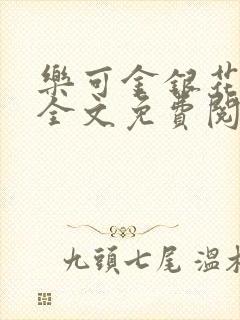 樂可金銀花
全文免費閱
九頭七尾 溫